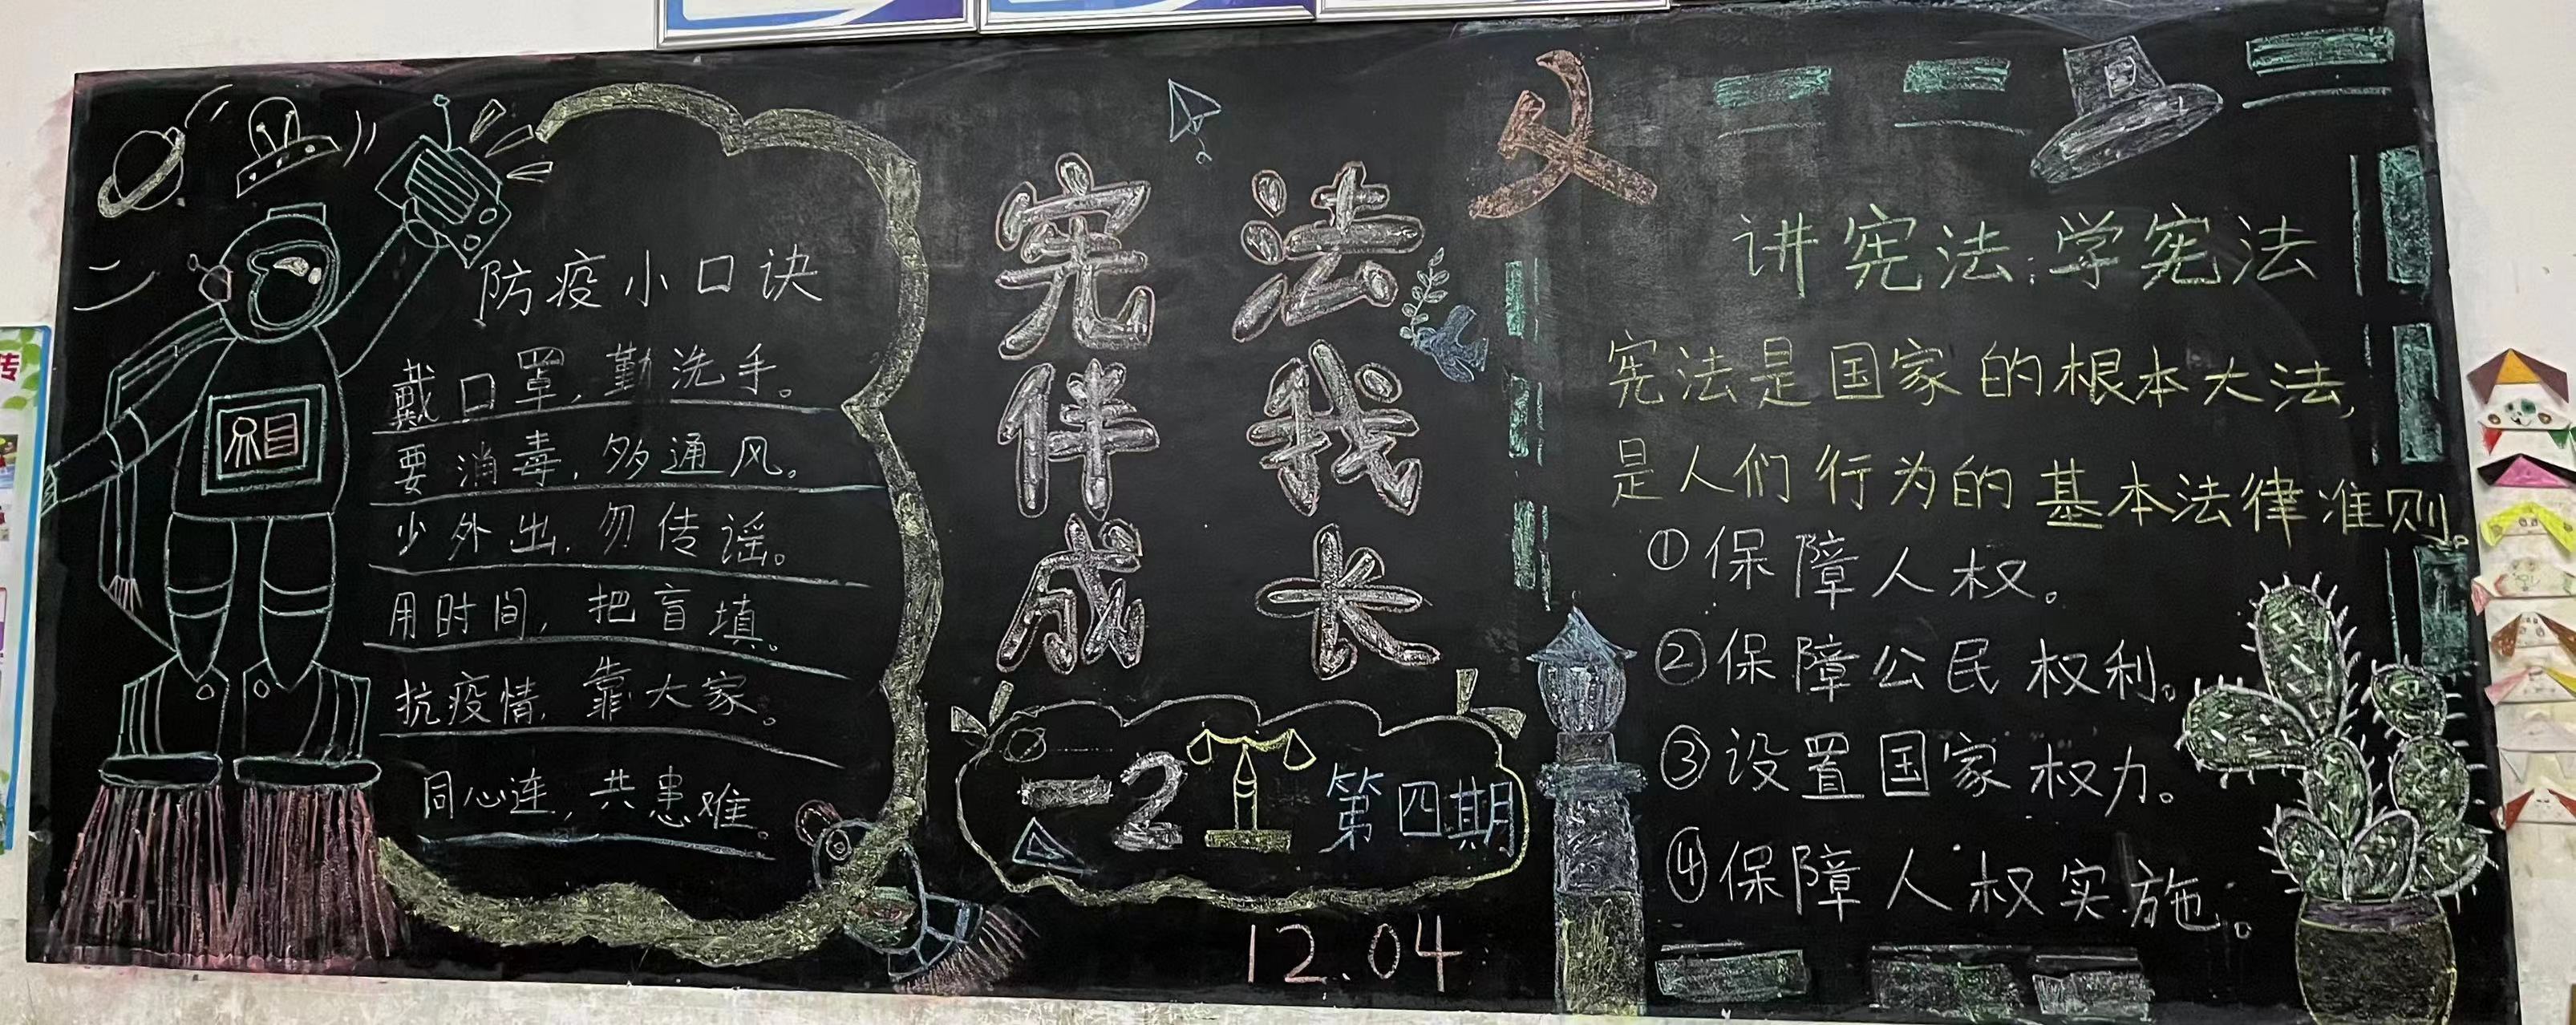 防疫小口诀
戴口罩，勤洗手。
要消毒，多通风。
少外出，勿传谣。
用时间，把盲填。
抗疫情，靠大家。
同心连，共患难。
宪法
伴我
成长
一2 第四期
12.04
讲宪法；学宪法
宪法是国家的根本大法，
是人们行为的基本法律准则。
①保障人权。
②保障公民权利。
③设置国家权力。
④保障人权实施。
传